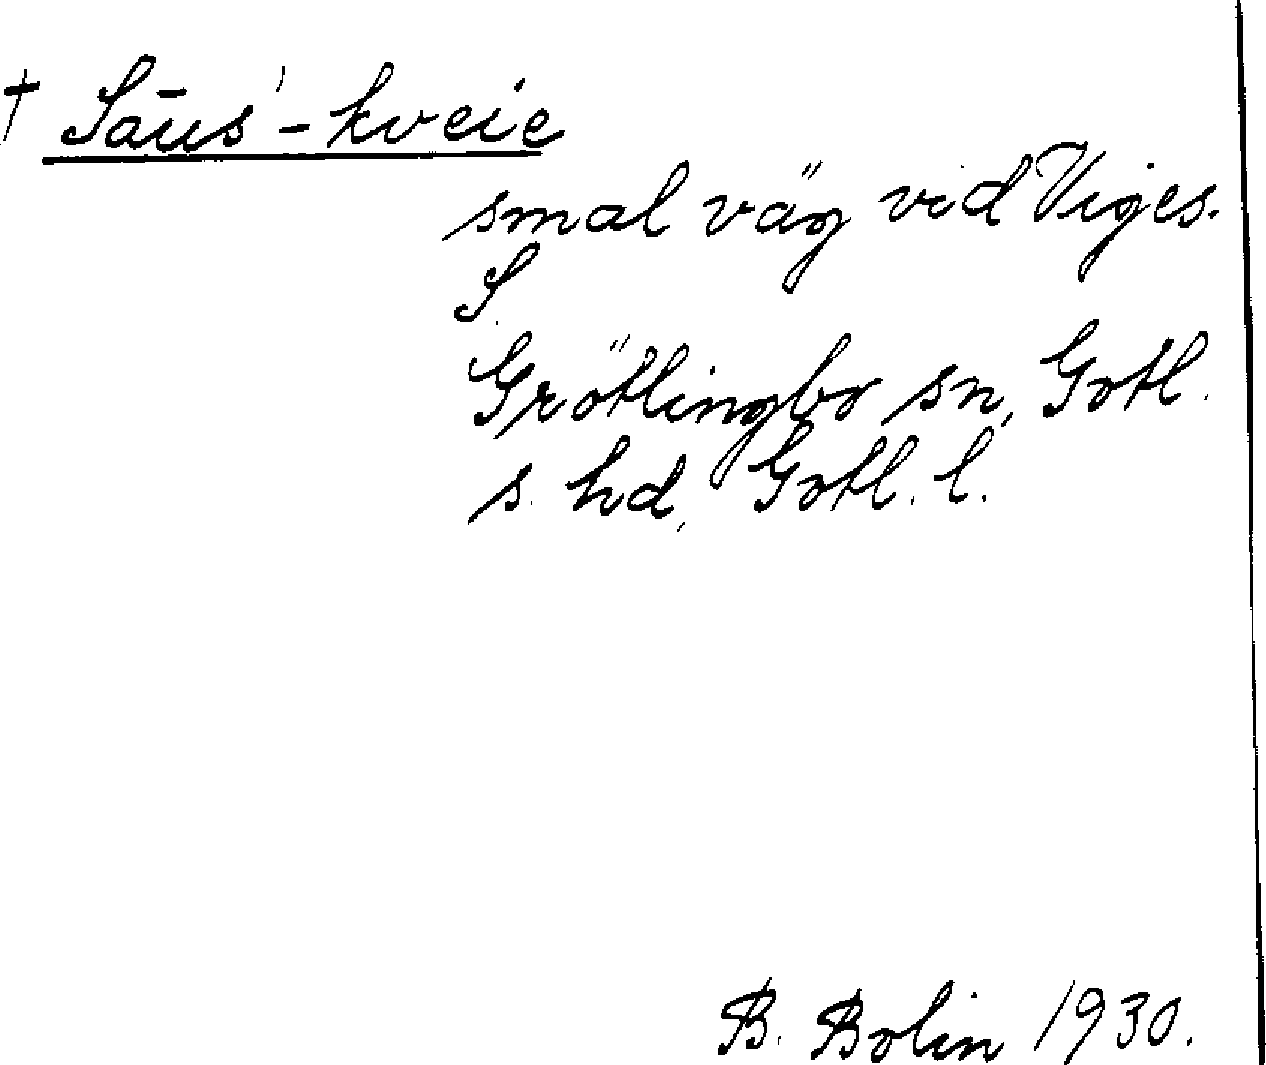 † Saūs'-kveie
smal väg vid Viges.
S.
Grötlingbo sn, Gotl.
s. hd, Gotl. l.
B. Bolin 1930.